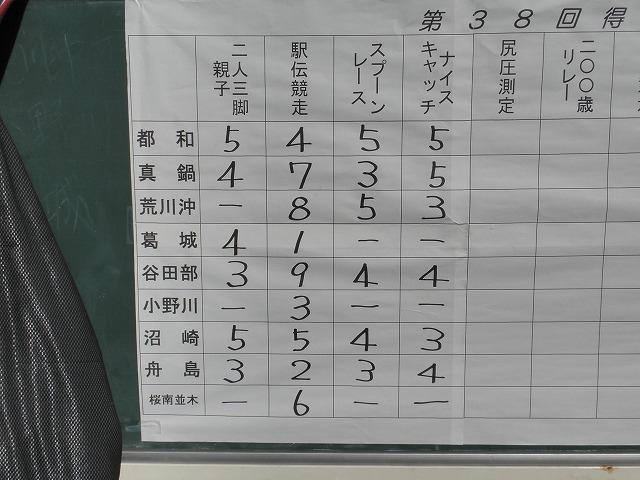 第38回得
親子二人三脚 駅伝競走 スプーンレース ナイスキャッチ 尻圧測定 二〇〇歳リレー
都和 5 4 5 5
真鍋 4 7 3 5
荒川沖 ー 8 5 3
葛城 4 1 ー ー
谷田部 3 9 4 4
小野川 ー 3 ー ー
沼崎 5 5 4 3
舟島 3 2 3 4
桜南並木 ー 6 ー ー